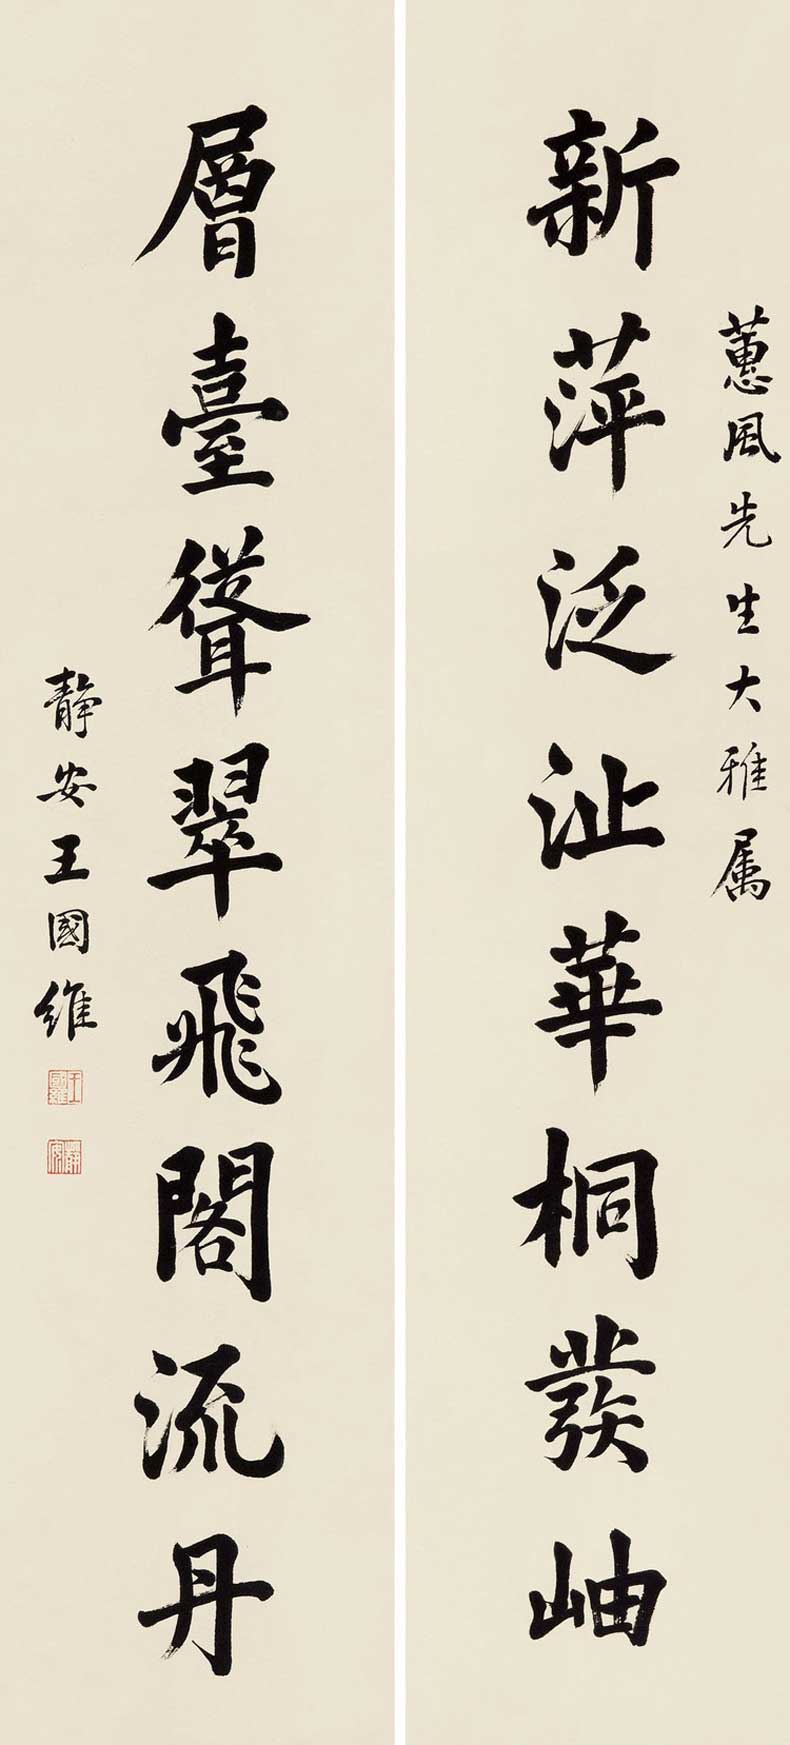 蕙風先生大雅属
新萍泛沚華桐發岫
層臺聳翠飛閣流丹
靜安王國維
王國維
靜安